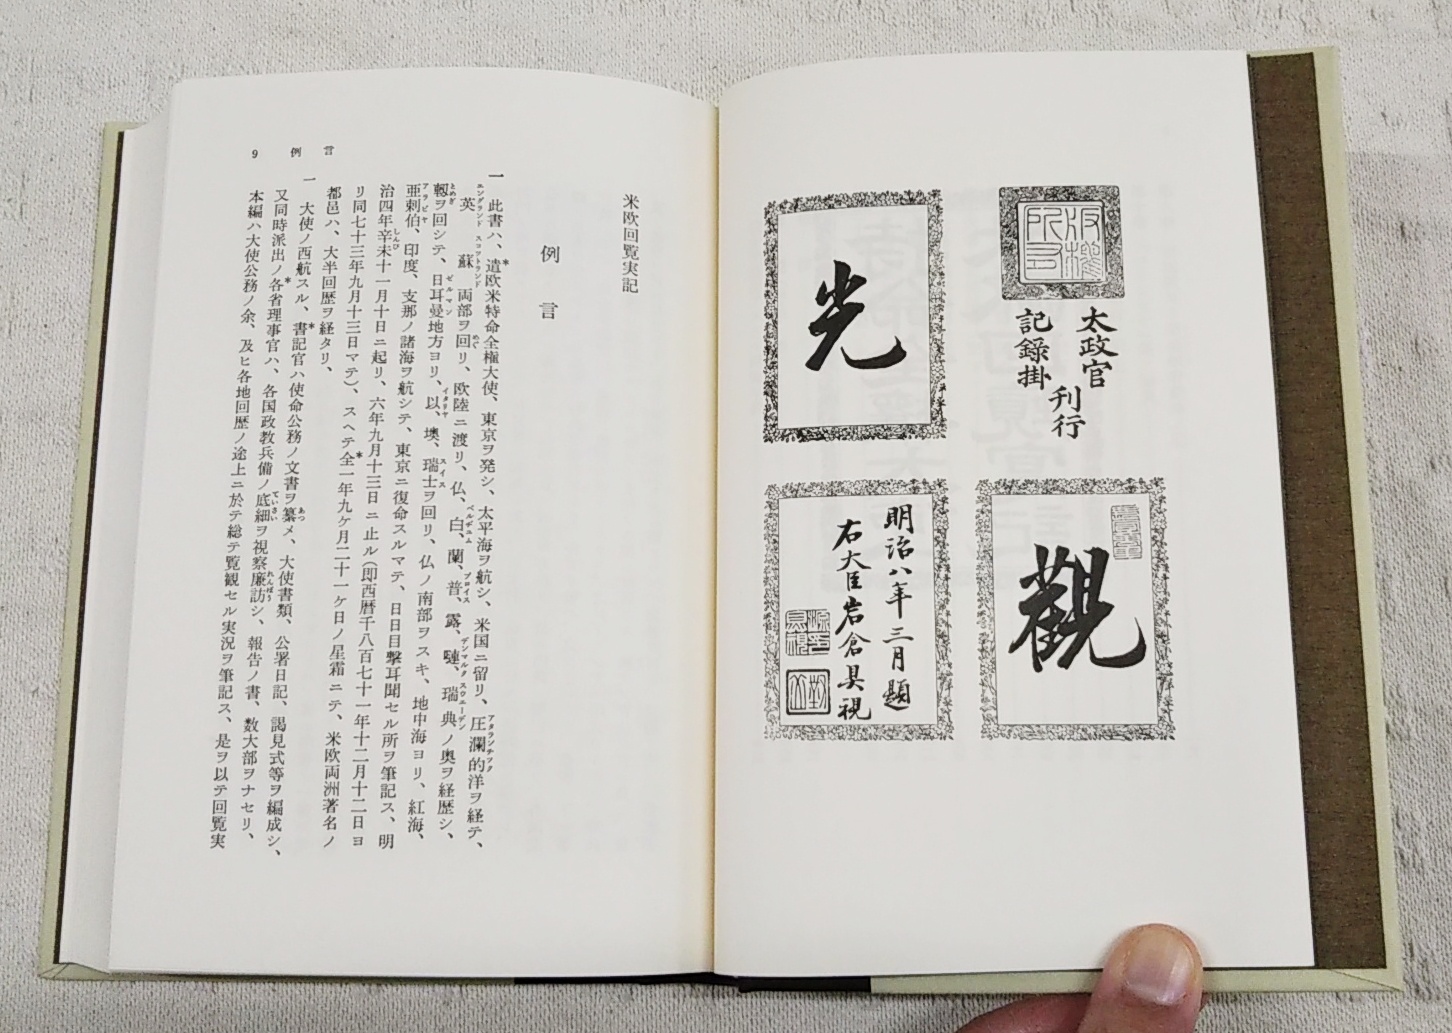 版權所有
太政官
記録掛
刊行
觀
光
明治八年三月題
右大臣岩倉具視
米欧回覧実記
例言
一 此書ハ、遣*欧米特命全権大使、東京ヲ発シ、太平海ヲ航シ、米国ニ留リ、圧瀾的(アタランチック)洋ヲ経テ、
英(エングランド)蘇(スコットランド)両部ヲ回(めぐ)リ、欧陸ニ渡リ、仏、白(ベルヂユム)、蘭、普(プロイス)、露、嗹(デンマルク)、瑞典(スウエーデン)ノ奥ヲ経歴シ、
軔(とめぎ)ヲ回シテ、日耳曼(ゼルマン)地方ヨリ、以(イタリヤ)、墺、瑞士(スイス)ヲ回リ、仏ノ南部ヲスキ、地中海ヨリ、紅海、
亜剌伯(アラビヤ)、印度、支那ノ諸海ヲ航シテ、東京ニ復命スルマテ、日日目撃耳聞セル所ヲ筆記ス、明
治四年辛未(しんび)十一月十日ニ起リ、六年九月十三日ニ止ル(即西暦千八百七十一年十二月十二日ヨ
リ同七十三年九月十三日マテ)、スヘテ全*一年九ケ月二十一ケ日ノ星霜ニテ、米欧両洲著名ノ
都邑ハ、大半回歴ヲ経タリ、
一 大使ノ西航スル、書*記官ハ使命公務ノ文書ヲ纂(あつ)メ、大使書類、公署日記、謁見式等ヲ編成シ、
又同時派出ノ各*省理事官ハ、各国政教兵備ノ底細(ていさい)ヲ視察廉訪(れんぼう)シ、報告ノ書、数大部ヲナセリ、
本編ハ大使公務ノ余、及ヒ各地回歴ノ途上ニ於テ総テ覧観セル実況ヲ筆記ス、是ヲ以テ回覧実
9 例言